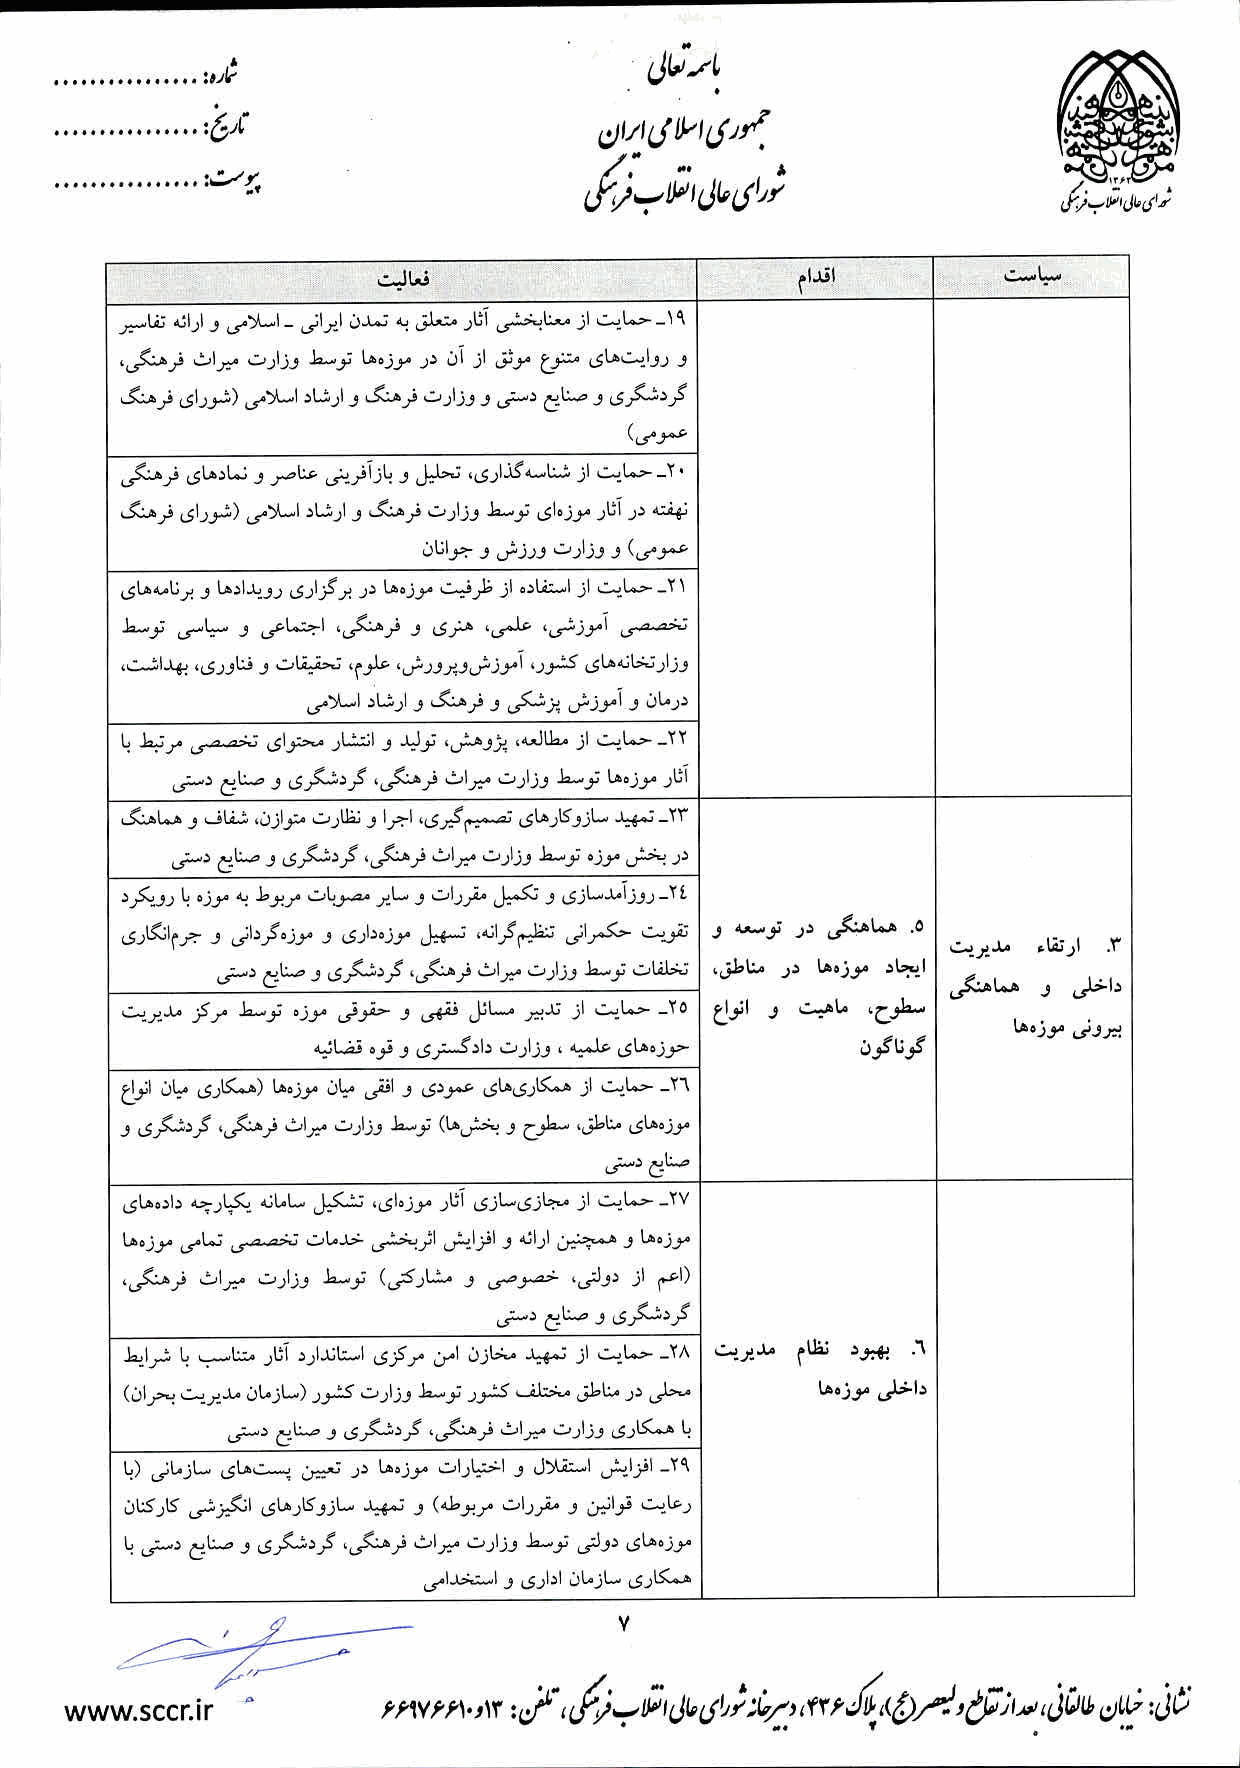 باسمه تعالی
جمهوری اسلامی ایران
شورای عالی انقلاب فرهنگی
شماره: ................
تاریخ: ................
پیوست: ................
۱۳۶۳
شورای عالی انقلاب فرهنگی
سیاست
اقدام
فعالیت
۱۹ـ حمایت از معنابخشی آثار متعلق به تمدن ایرانی ـ اسلامی و ارائه تفاسیر
و روایت‌های متنوع موثق از آن در موزه‌ها توسط وزارت میراث فرهنگی،
گردشگری و صنایع دستی و وزارت فرهنگ و ارشاد اسلامی (شورای فرهنگ
عمومی)
۲۰ـ حمایت از شناسه‌گذاری، تحلیل و بازآفرینی عناصر و نمادهای فرهنگی
نهفته در آثار موزه‌ای توسط وزارت فرهنگ و ارشاد اسلامی (شورای فرهنگ
عمومی) و وزارت ورزش و جوانان
۲۱ـ حمایت از استفاده از ظرفیت موزه‌ها در برگزاری رویدادها و برنامه‌های
تخصصی آموزشی، علمی، هنری و فرهنگی، اجتماعی و سیاسی توسط
وزارتخانه‌های کشور، آموزش‌وپرورش، علوم، تحقیقات و فناوری، بهداشت،
درمان و آموزش پزشکی و فرهنگ و ارشاد اسلامی
۲۲ـ حمایت از مطالعه، پژوهش، تولید و انتشار محتوای تخصصی مرتبط با
آثار موزه‌ها توسط وزارت میراث فرهنگی، گردشگری و صنایع دستی
۳. ارتقاء مدیریت
داخلی و هماهنگی
بیرونی موزه‌ها
۵. هماهنگی در توسعه و
ایجاد موزه‌ها در مناطق،
سطوح، ماهیت و انواع
گوناگون
۲۳ـ تمهید سازوکارهای تصمیم‌گیری، اجرا و نظارت متوازن، شفاف و هماهنگ
در بخش موزه توسط وزارت میراث فرهنگی، گردشگری و صنایع دستی
۲٤ـ روزآمدسازی و تکمیل مقررات و سایر مصوبات مربوط به موزه با رویکرد
تقویت حکمرانی تنظیم‌گرانه، تسهیل موزه‌داری و موزه‌گردانی و جرم‌انگاری
تخلفات توسط وزارت میراث فرهنگی، گردشگری و صنایع دستی
۲۵ـ حمایت از تدبیر مسائل فقهی و حقوقی موزه توسط مرکز مدیریت
حوزه‌های علمیه ، وزارت دادگستری و قوه قضائیه
۲٦ـ حمایت از همکاری‌های عمودی و افقی میان موزه‌ها (همکاری میان انواع
موزه‌های مناطق، سطوح و بخش‌ها) توسط وزارت میراث فرهنگی، گردشگری و
صنایع دستی
٦. بهبود نظام مدیریت
داخلی موزه‌ها
۲۷ـ حمایت از مجازی‌سازی آثار موزه‌ای، تشکیل سامانه یکپارچه داده‌های
موزه‌ها و همچنین ارائه و افزایش اثربخشی خدمات تخصصی تمامی موزه‌ها
(اعم از دولتی، خصوصی و مشارکتی) توسط وزارت میراث فرهنگی،
گردشگری و صنایع دستی
۲۸ـ حمایت از تمهید مخازن امن مرکزی استاندارد آثار متناسب با شرایط
محلی در مناطق مختلف کشور توسط وزارت کشور (سازمان مدیریت بحران)
با همکاری وزارت میراث فرهنگی، گردشگری و صنایع دستی
۲۹ـ افزایش استقلال و اختیارات موزه‌ها در تعیین پست‌های سازمانی (با
رعایت قوانین و مقررات مربوطه) و تمهید سازوکارهای انگیزشی کارکنان
موزه‌های دولتی توسط وزارت میراث فرهنگی، گردشگری و صنایع دستی با
همکاری سازمان اداری و استخدامی
۷
نشانی: خیابان طالقانی، بعد از تقاطع ولیعصر (عج)، پلاک ۴۳۶، دبیرخانه شورای عالی انقلاب فرهنگی ، تلفن: ۱۳و۶۶۹۷۶۶۱۰
www.sccr.ir